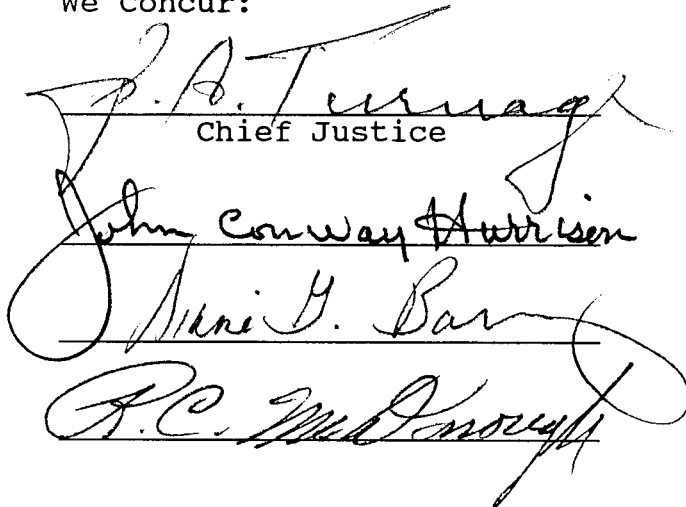 We Concur:
J. A. Turnage
Chief Justice
John Conway Harrison
Diane G. Barz
R. C. McDonough